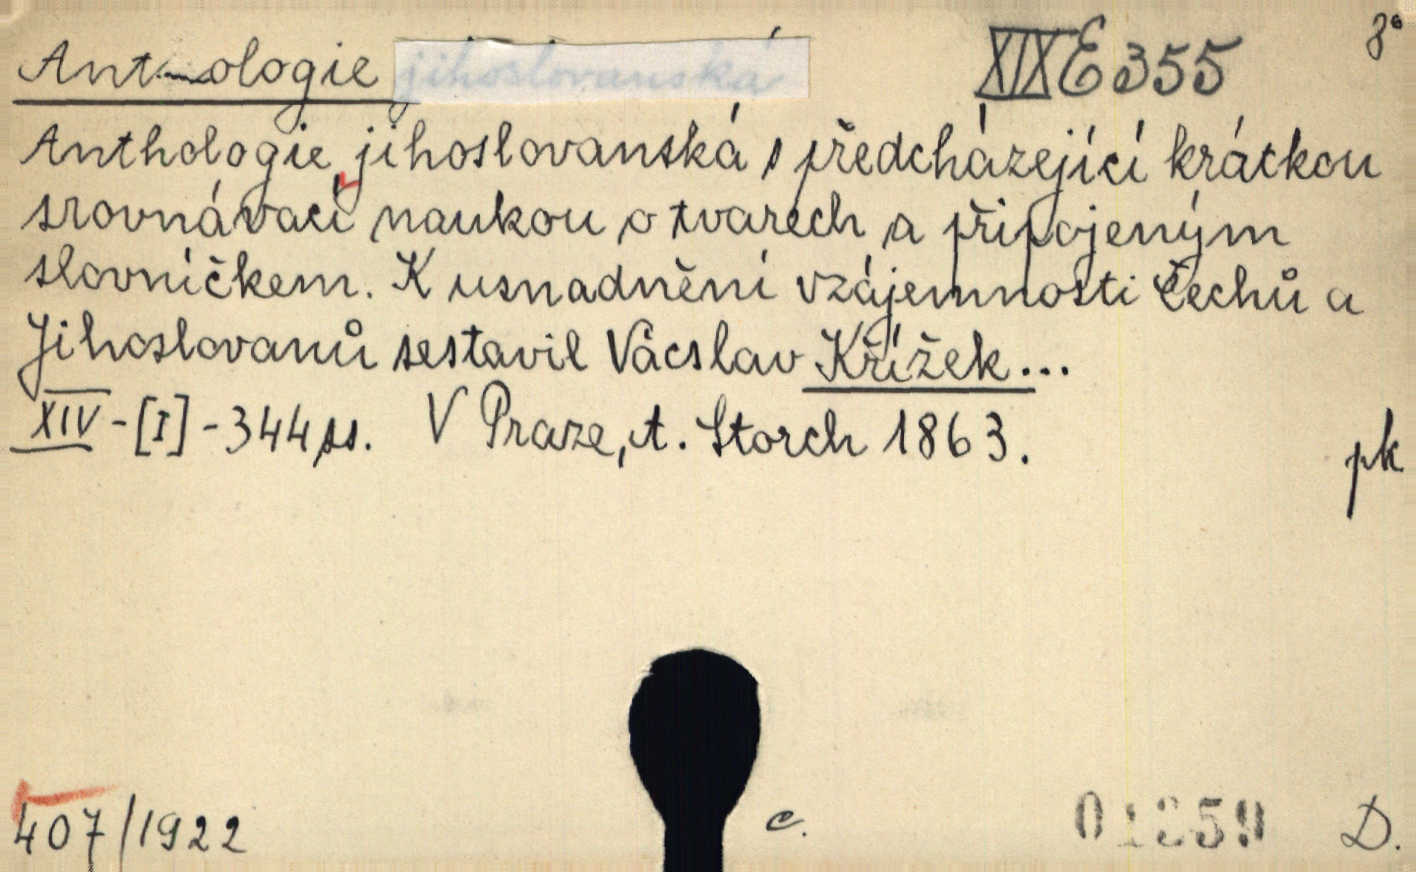 Antologie jihoslovanská XIX E 355 8°
Anthologie jihoslovanská s předcházející krátkou
srovnávací naukou o tvarech a připojeným
slovníčkem. K usnadnění vzájemnosti Čechů a
Jihoslovanů sestavil Vácslav Křížek...
XIV-[I]-344 ss. V Praze, A. Storch 1863.
pk
407/1922 c. D.